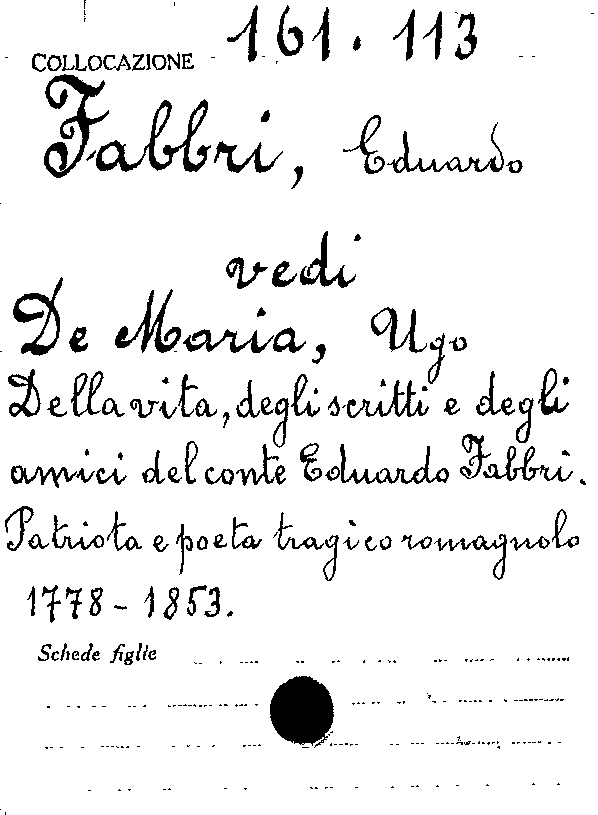 COLLOCAZIONE 161.113
Fabbri, Eduardo
vedi
De Maria, Ugo
Della vita, degli scritti e degli
amici del conte Eduardo Fabbri.
Patriota e poeta tragico romagnolo
1778-1853.
Schede figlie